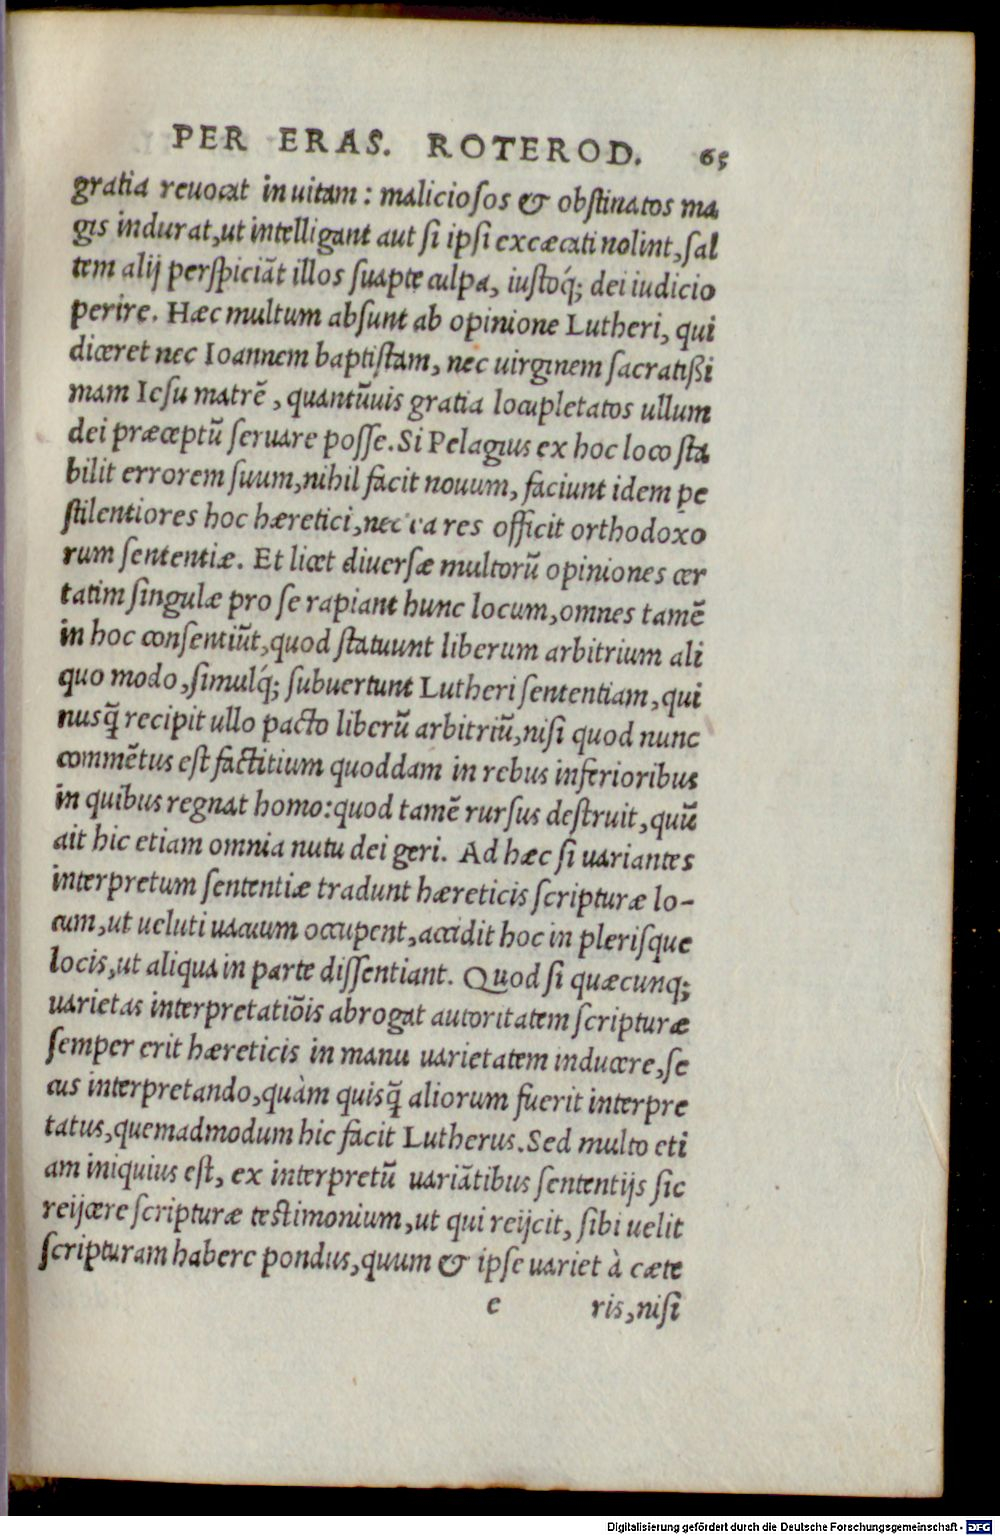 PER ERAS. ROTEROD. 65
gratia reuocat in uitam : maliciosos & obstinatos ma
gis indurat,ut intelligant aut si ipsi excæcati nolint, sal
tem alij perspiciãt illos suapte culpa, iustoq́; dei iudicio
perire. Hæc multum absunt ab opinione Lutheri, qui
diceret nec Ioannem baptistam, nec uirginem sacratißi
mam Iesu matrẽ, quantũuis gratia locupletatos ullum
dei præceptũ seruare posse. Si Pelagius ex hoc loco sta
bilit errorem suum, nihil facit nouum, faciunt idem pe
stilentiores hoc hæretici, nec ea res officit orthodoxo
rum sententiæ. Et licet diuersæ multorũ opiniones cer
tatim singulæ pro se rapiant hunc locum, omnes tamẽ
in hoc consentiũt, quod statuunt liberum arbitrium ali
quo modo, simulq́; subuertunt Lutheri sententiam, qui
nusq̃ recipit ullo pacto liberũ arbitriũ, nisi quod nunc
commẽtus est factitium quoddam in rebus inferioribus
in quibus regnat homo: quod tamẽ rursus destruit, quũ
ait hic etiam omnia nutu dei geri. Ad hæc si uariantes
interpretum sententiæ tradunt hæreticis scripturæ lo-
cum, ut ueluti uacuum occupent, accidit hoc in plerisque
locis, ut aliqua in parte dissentiant. Quod si quæcunq;
uarietas interpretatiõis abrogat autoritatem scripturæ
semper erit hæreticis in manu uarietatem inducere, se
cus interpretando, quàm quisq̃ aliorum fuerit interpre
tatus, quemadmodum hic facit Lutherus. Sed multo eti
am iniquius est, ex interpretũ uariãtibus sententijs sic
reijcere scripturæ testimonium, ut qui reijcit, sibi uelit
scripturam habere pondus, quum & ipse uariet à cæte
e ris, nisi
Digitalisierung gefördert durch die Deutsche Forschungsgemeinschaft - DFG